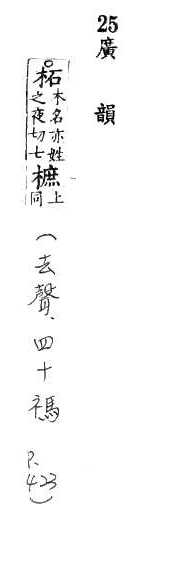 25廣韻
柘木名亦姓之夜切七樜上同（去聲、四十禡P.423）